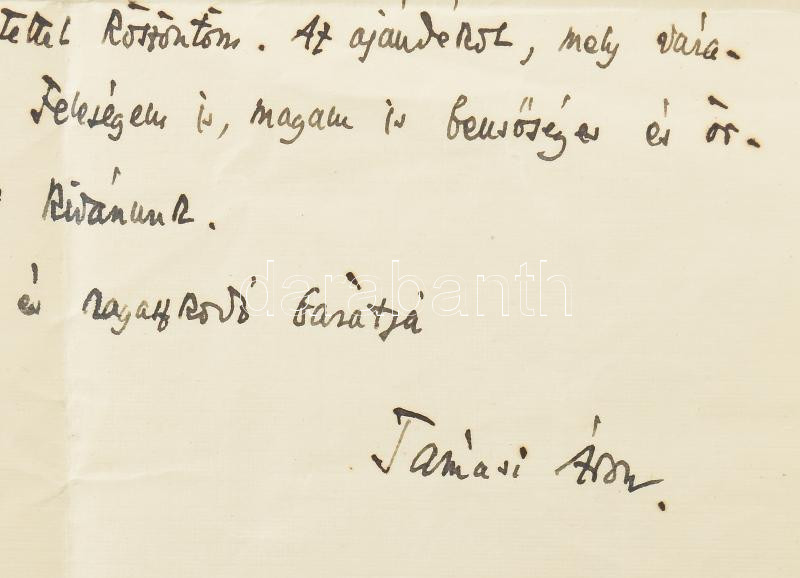 tettel köszöntöm. Az ajándékot, mely vára-
Feleségem is, magam is bensőséges és ör-
kivánunk.
és ragaszkodó barátja
darabanth
Tamási Áron.